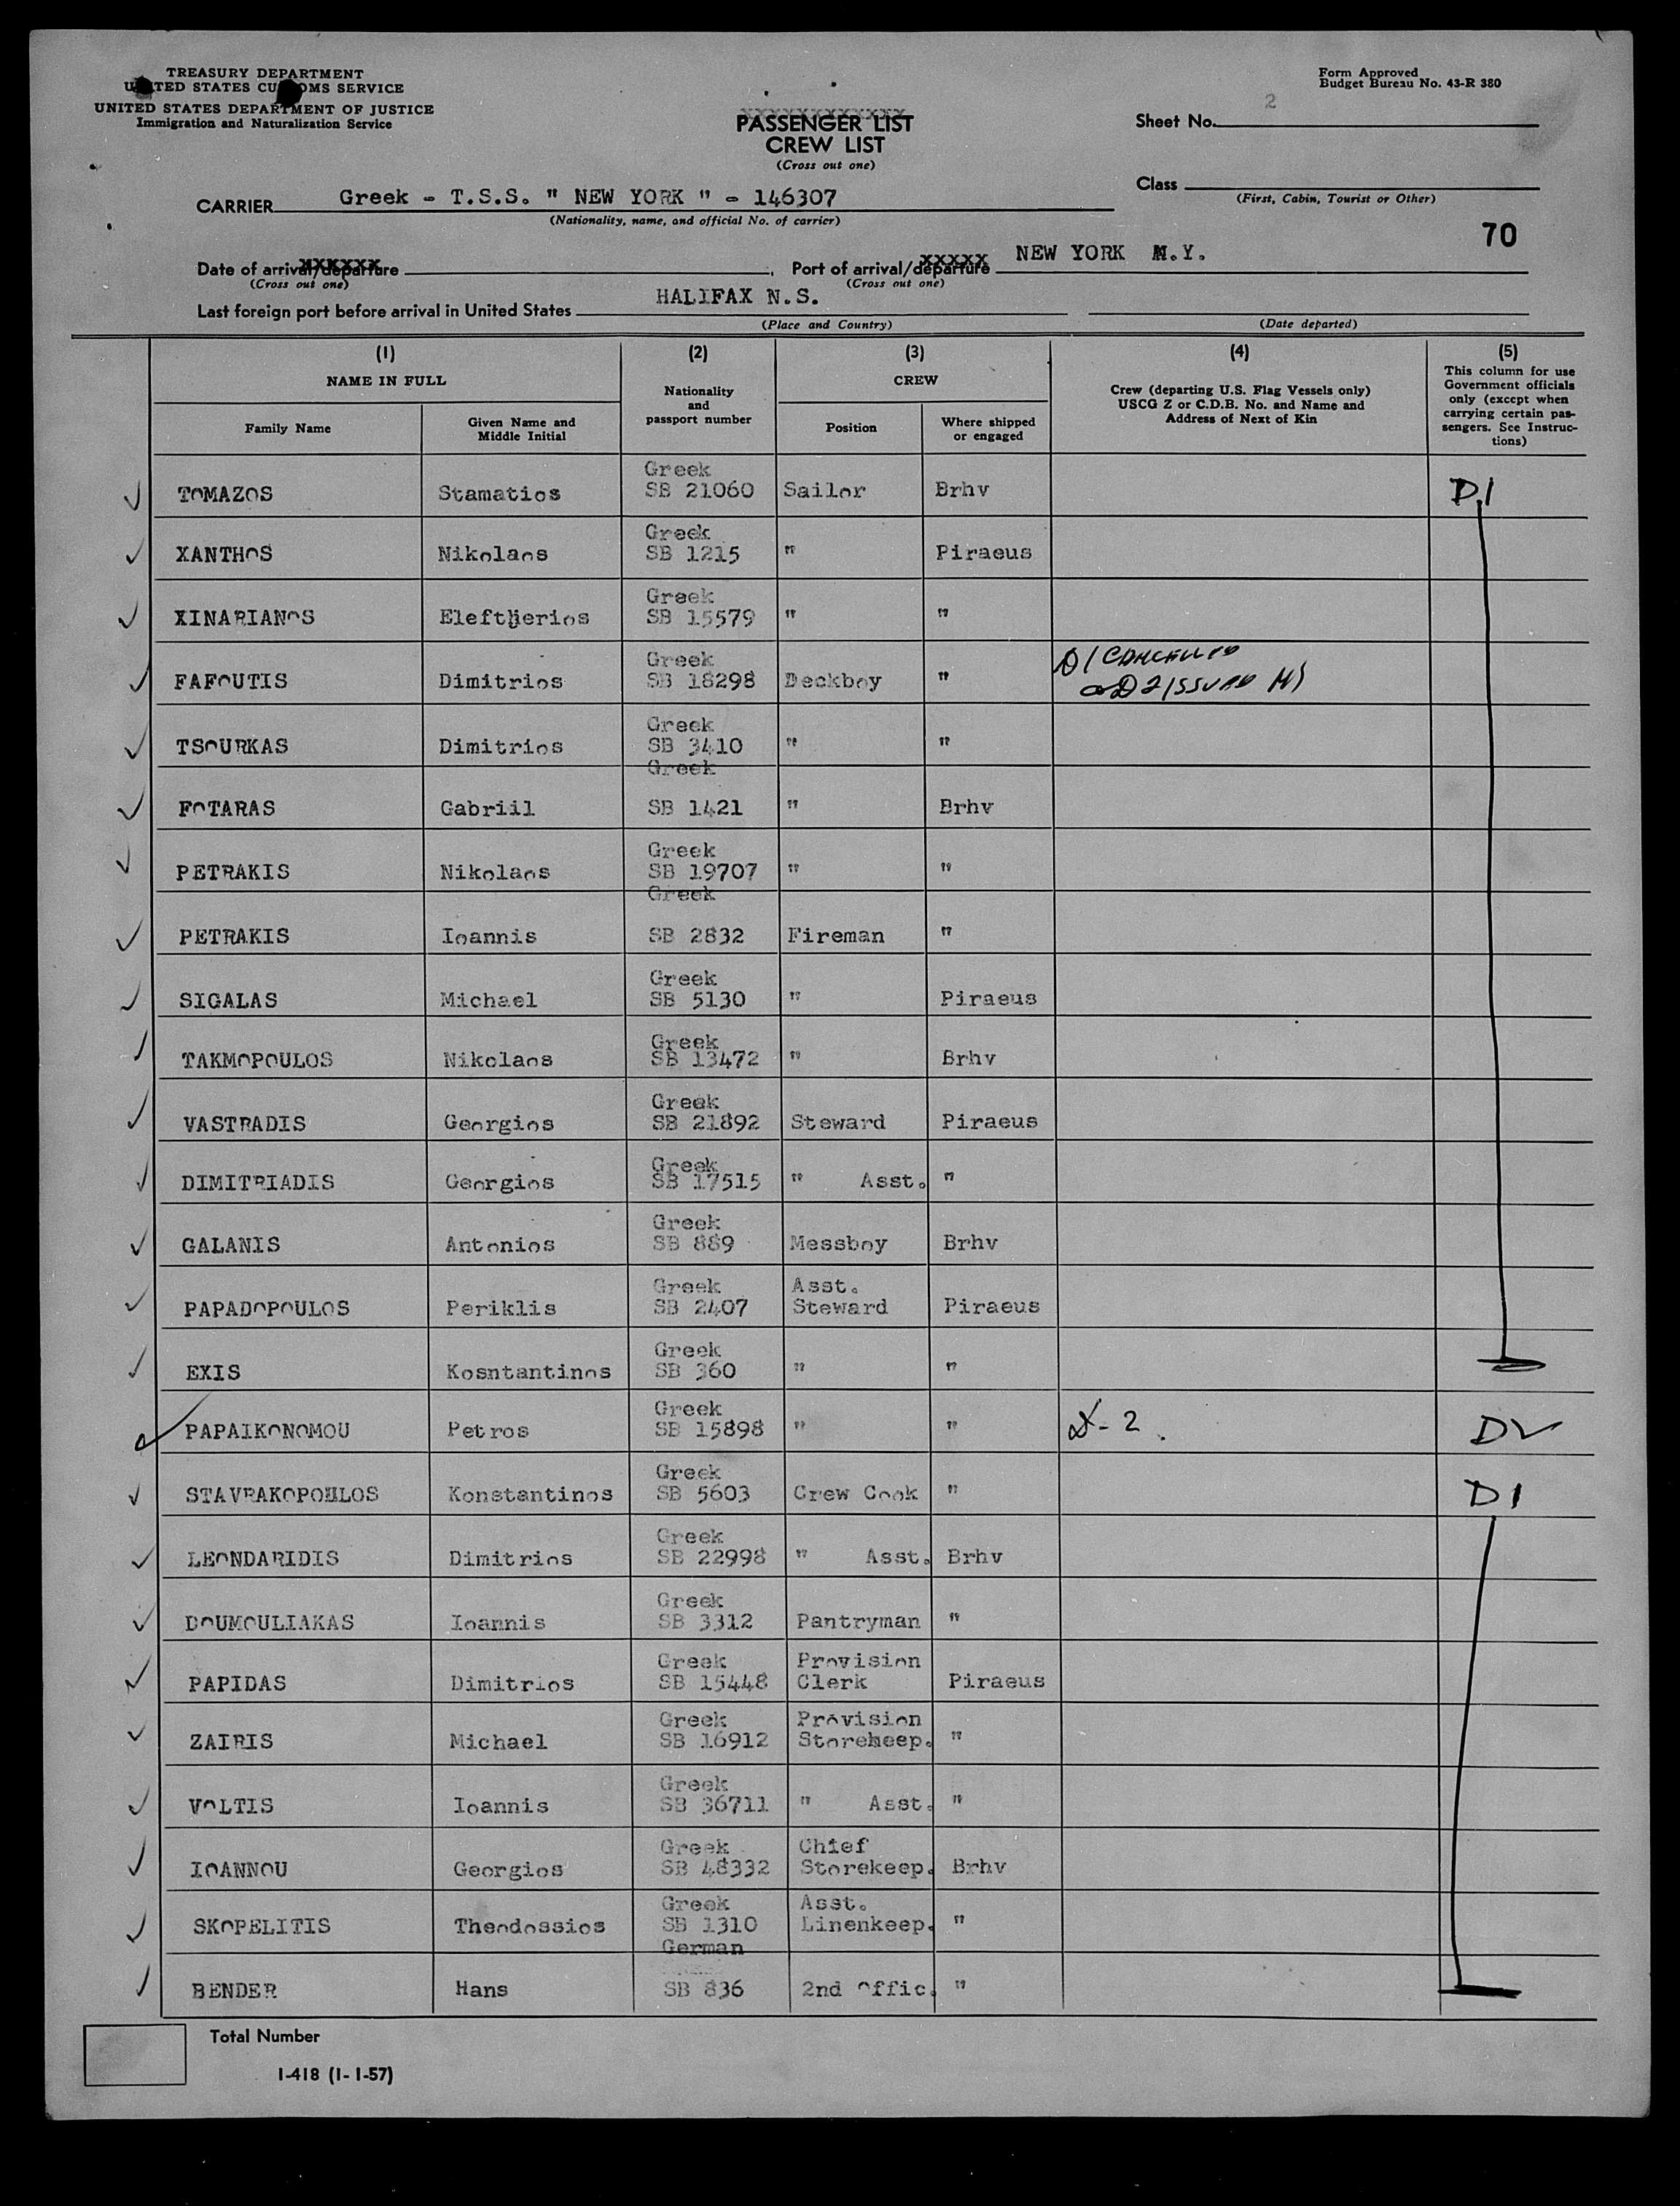 TREASURY DEPARTMENT
UNITED STATES CUSTOMS SERVICE
UNITED STATES DEPARTMENT OF JUSTICE
Immigration and Naturalization Service
Form Approved
Budget Bureau No. 43-R 380
PASSENGER LIST
CREW LIST
(Cross out one)
2
Sheet No.
Class
(First, Cabin, Tourist or Other)
CARRIER Greek - T.S.S. " NEW YORK " - 146307
(Nationality, name, and official No. of carrier)
70
Date of arrival/departure
(Cross out one)
Port of arrival/departure NEW YORK N.Y.
(Cross out one)
Last foreign port before arrival in United States HALIFAX N.S.
(Place and Country)
(Date departed)
(1) (2) (3) (4) (5)
NAME IN FULL
Nationality and passport number
CREW
Crew (departing U.S. Flag Vessels only) USCG Z or C.D.B. No. and Name and Address of Next of Kin
This column for use Government officials only (except when carrying certain passengers. See Instructions)
Family Name
Given Name and Middle Initial
Position
Where shipped or engaged
TOMAZOS Stamatios Greek SB 21060 Sailor Brhv D.1
XANTHOS Nikolaos Greek SB 1215 " Piraeus
XINARIANOS Eleftherios Greek SB 15579 " "
FAFOUTIS Dimitrios Greek SB 18298 Deckboy " D1 CANCELLED
D2 ISSUED
TSOURKAS Dimitrios Greek SB 3410 " "
FOTARAS Gabriil Greek SB 1421 " Brhv
PETRAKIS Nikolaos Greek SB 19707 " "
PETRAKIS Ioannis Greek SB 2832 Fireman "
SIGALAS Michael Greek SB 5130 " Piraeus
TAKMOPOULOS Nikolaos Greek SB 13472 " Brhv
VASTRADIS Georgios Greek SB 21892 Steward Piraeus
DIMITRIADIS Georgios Greek SB 17515 " Asst. "
GALANIS Antonios Greek SB 889 Messboy Brhv
PAPADOPOULOS Periklis Greek SB 2407 Asst. Steward Piraeus
EXIS Kosntantinos Greek SB 360 " "
PAPAIKONOMOU Petros Greek SB 15898 " " D-2. D2
STAVRAKOPOULOS Konstantinos Greek SB 5603 Crew Cook " D1
LEONDARIDIS Dimitrios Greek SB 22998 " Asst. Brhv
DOUMOULIAKAS Ioannis Greek SB 3312 Pantryman "
PAPIDAS Dimitrios Greek SB 15448 Provision Clerk Piraeus
ZAIRIS Michael Greek SB 16912 Provision Storekeep. "
VOLTIS Ioannis Greek SB 36711 " Asst. "
IOANNOU Georgios Greek SB 48332 Chief Storekeep. Brhv
SKOPELITIS Theodossios Greek SB 1310 Asst. Linenkeep. "
BENDER Hans German SB 836 2nd Offic. "
Total Number
I-418 (1-1-57)